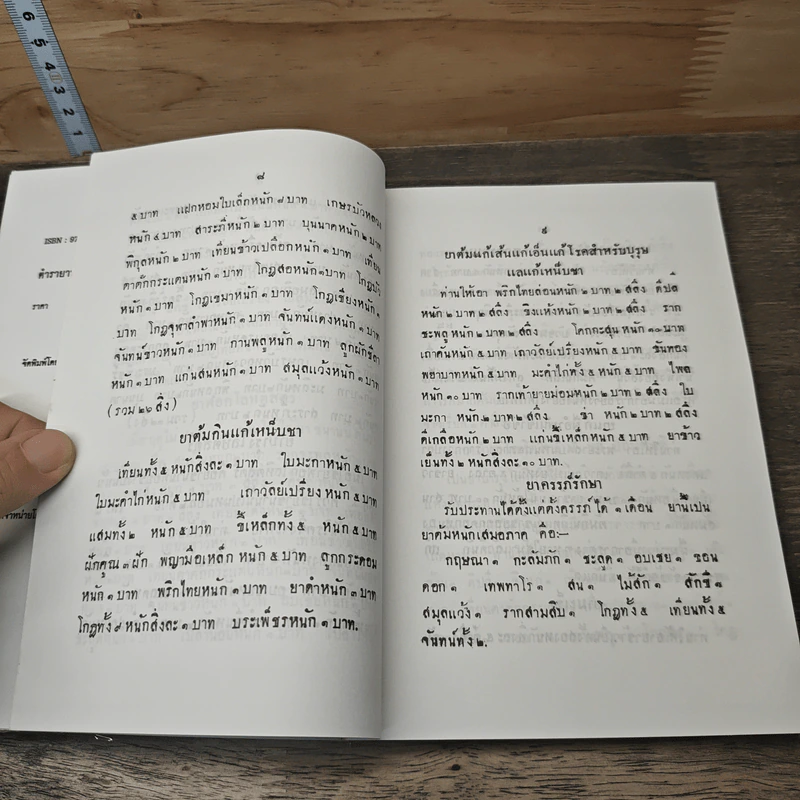 6 5 4 3 2 1
ISBN : 97
ตำรายา
ราคา
จัดพิมพ์โดย
จำหน่ายโ
๘
๕ บาท แฝกหอมใบเล็กหนัก ๘ บาท เกษรบัวหลวง
หนัก ๔ บาท สาระภี่หนัก ๒ บาท บุนนาคหนัก ๒ บาท
พิกุลหนัก ๒ บาท เทียนข้าวเปลือกหนัก ๑ บาท เทียน
ตาตั๊กกระแตนหนัก ๑ บาท โกฏสอหนัก ๑ บาท โกฏบัว
หนัก ๑ บาท โกฏเขมาหนัก ๑ บาท โกฏเชียงหนัก ๑
บาท โกฏจุฬาลำพาหนัก ๑ บาท จันทน์แดงหนัก ๑ บาท
จันทน์ขาวหนัก ๑ บาท กานพลูหนัก ๑ บาท ลูกผักชีลา
หนัก ๑ บาท แก่นสนหนัก ๑ บาท สมุลแว้งหนัก ๑ บาท
(รวม ๒๖ สิ่ง)
ยาต้มกินแก้เหน็บชา
เทียนทั้ง ๕ หนักสิ่งละ ๑ บาท ใบมะกาหนัก ๕ บาท
ใบมะคำไก่หนัก ๕ บาท เถาวัลย์เปรียงหนัก ๕ บาท
แสมทั้ง ๒ หนัก ๕ บาท ขี้เหล็กทั้ง ๕ หนัก ๕ บาท
ฝักคูณ ๓ ฝัก พญามือเหล็ก หนัก ๕ บาท ลูกกระดอม
หนัก ๑ บาท พริกไทยหนัก ๑ บาท ยาดำหนัก ๓ บาท
โกฏทั้ง ๙ หนักสิ่งละ ๑ บาท บระเพ็ชรหนัก ๑ บาท.
๙
ยาต้มแก้เส้นแก้เอ็นแก้โรคสำหรับบุรุษ
แลแก้เหน็บชา
ท่านให้เอา พริกไทยล่อนหนัก ๒ บาท ๒ สลึง ดีปลี
หนัก ๒ บาท ๒ สลึง ขิงแห้งหนัก ๒ บาท ๒ สลึง ราก
ชะพลูหนัก ๒ บาท ๒ สลึง โคกกะสุ่นหนัก ๑๐ บาท
เถาคันหนัก ๕ บาท เถาวัลย์เปรียงหนัก ๕ บาท ขันทอง
พยาบาทหนัก ๕ บาท มะคำไก่ทั้ง ๕ หนัก ๕ บาท ไพล
หนัก ๑๐ บาท รากเท้ายายม่อมหนัก ๒ บาท ๒ สลึง ใบ
มะกา หนัก ๒ บาท ๒ สลึง ข่า หนัก ๒ บาท ๒ สลึง
ดีเกลือหนัก ๒ บาท แก่นขี้เหล็กหนัก ๕ บาท ยาข้าว
เย็นทั้ง ๒ หนักสิ่งละ ๑๐ บาท.
ยาครรภ์รักษา
รับประทานได้ตั้งแต่ตั้งครรภ์ได้ ๑ เดือน ยานี้เป็น
ยาต้มหนักเสมอภาค คือ:-
กฤษณา ๑ กะลัมภัก ๑ ชะลูด ๑ อบเชย ๑ ขอน
ดอก ๑ เทพทาโร ๑ สน ๑ ไม้สัก ๑ สักขี ๑
สมุลแว้ง ๑ รากสามสิบ ๑ โกฏทั้ง ๕ เทียนทั้ง ๕
จันทน์ทั้ง ๒.